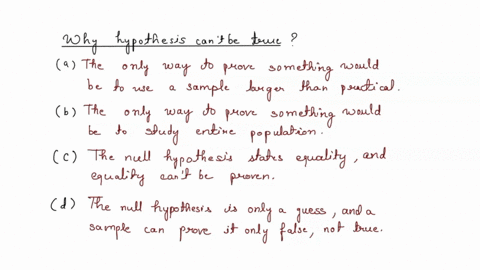 Why hypothesis can't be true ?
(a) The only way to prove something would
be to use a sample larger than practical.
(b) The only way to prove something would
be to study entire population.
(c) The null hypothesis states equality, and
equality can't be proven.
(d) The null hypothesis is only a guess, and a
sample can prove it only false, not true.